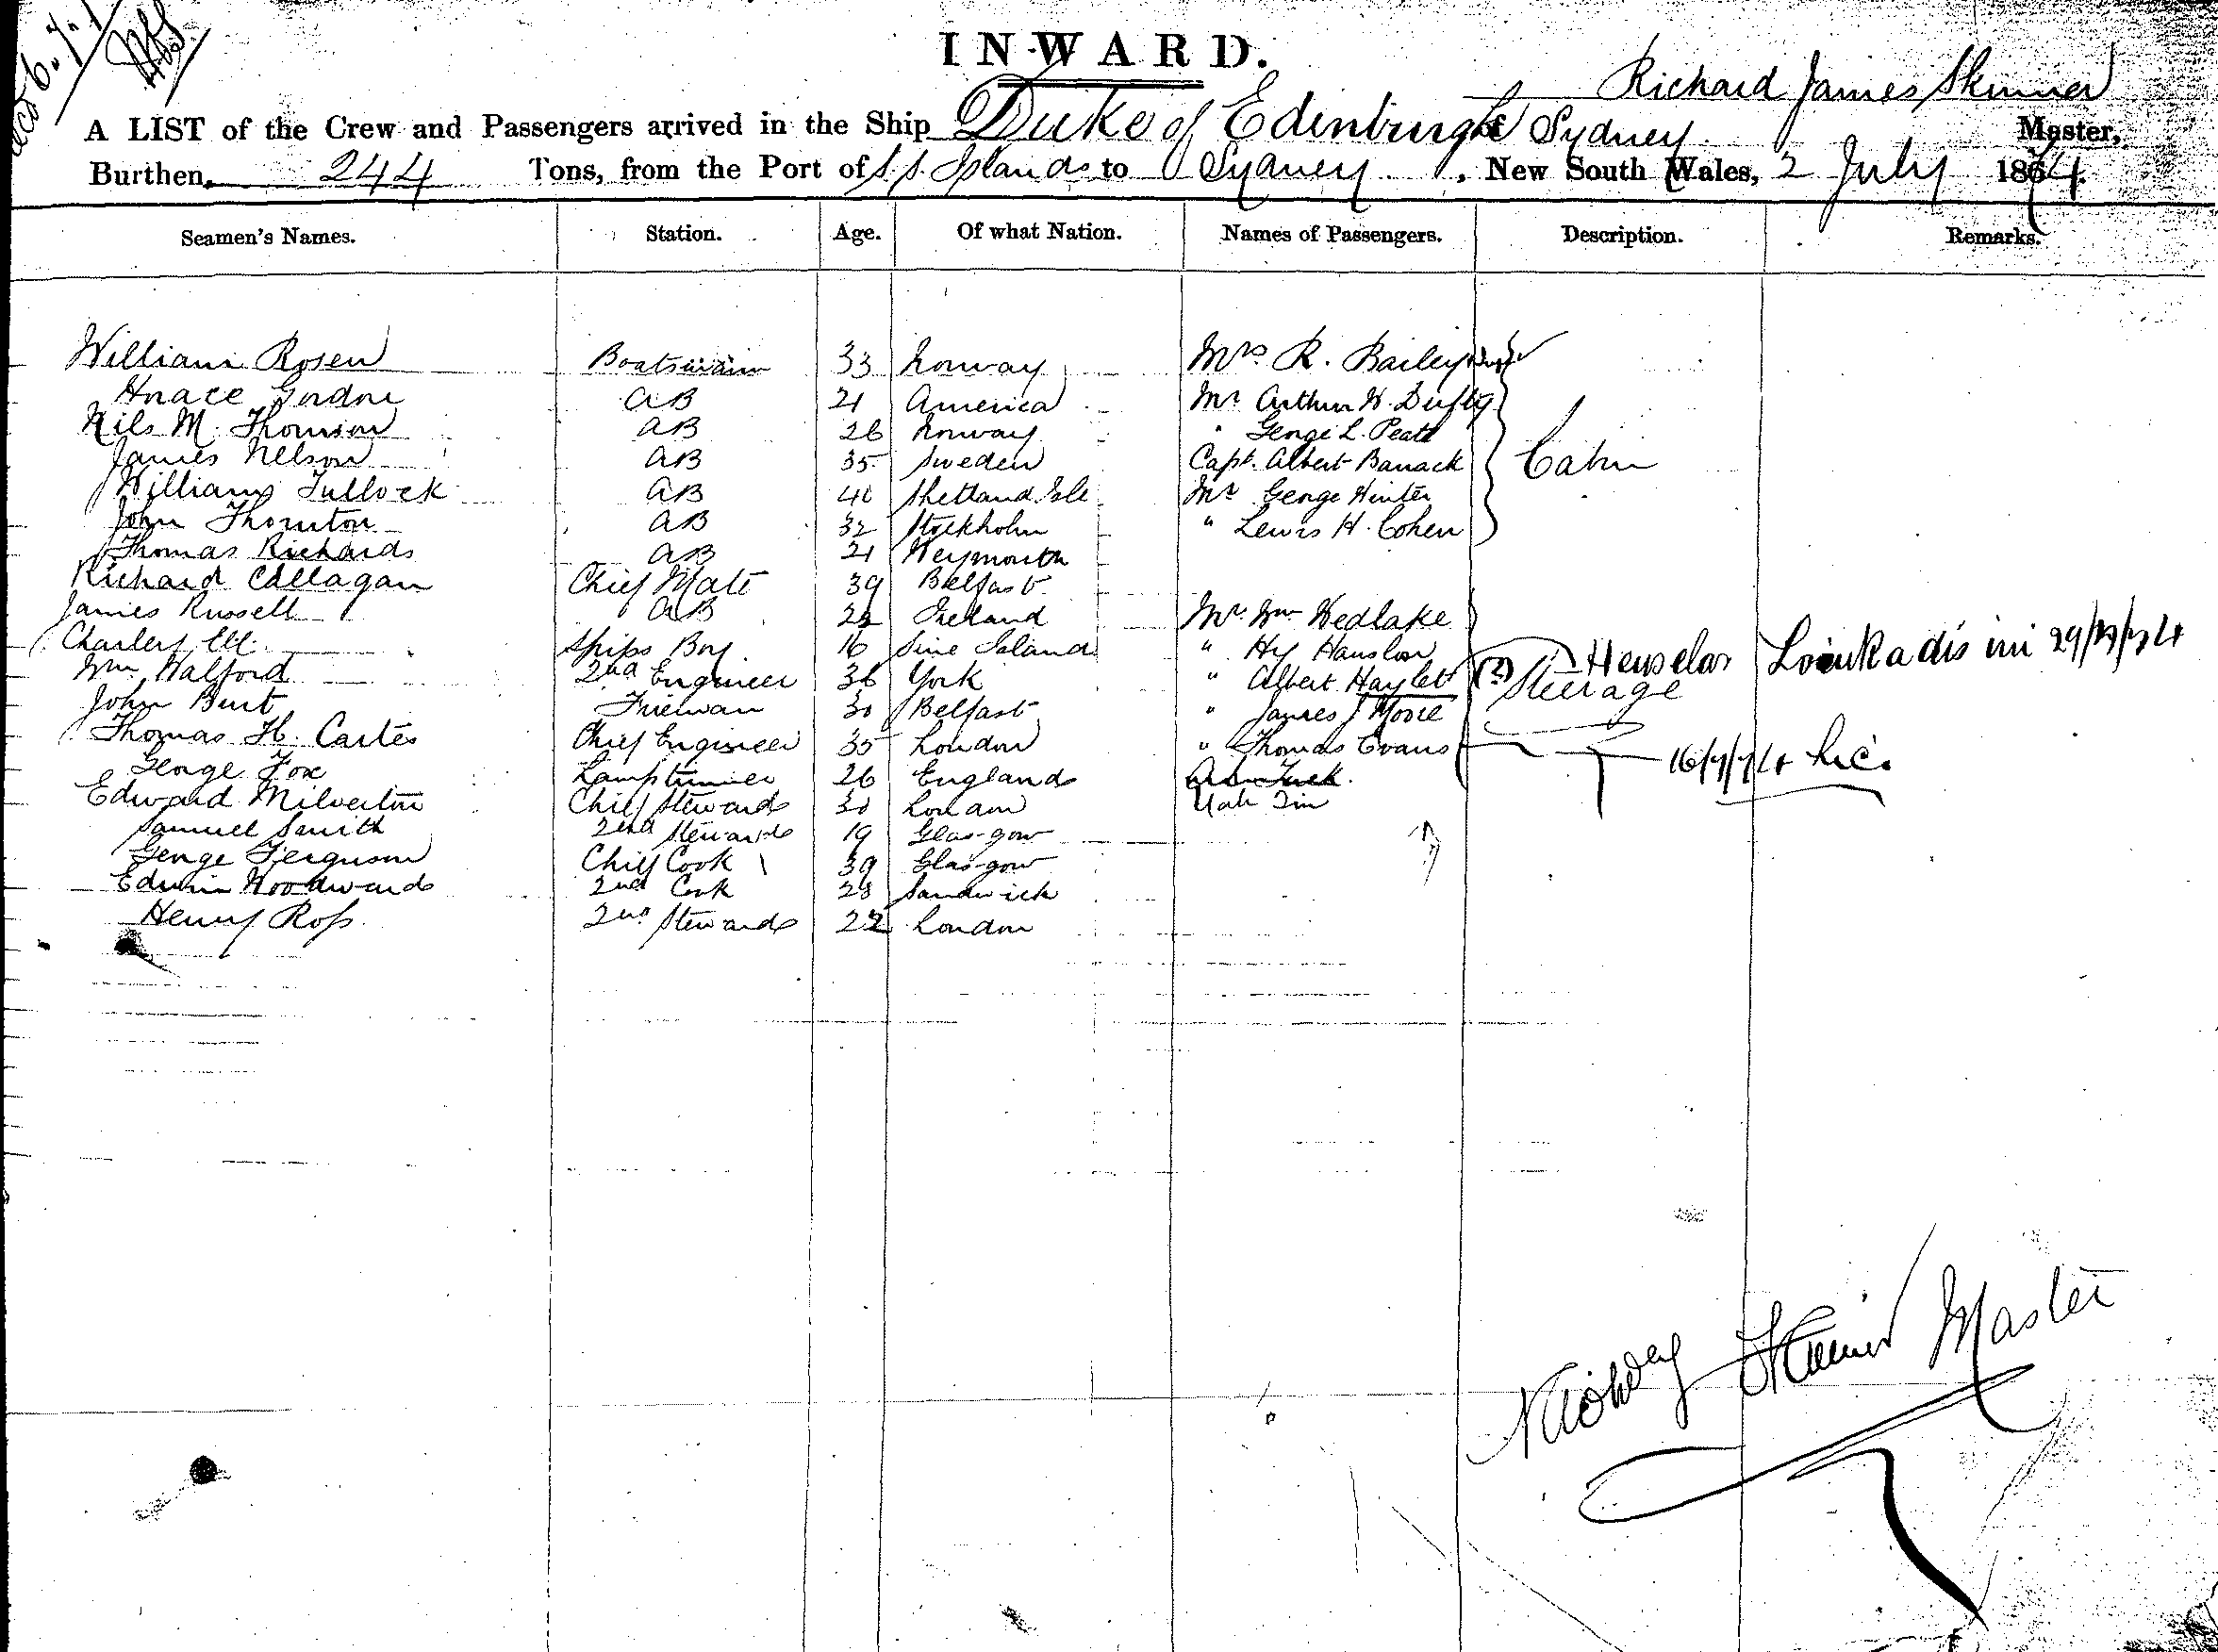 INWARD.
Richard James Skinner
A LIST of the Crew and Passengers arrived in the Ship Duke of Edinburgh of Sydney Master,
Burthen, 244 Tons, from the Port of S.S. Islands to Sydney, New South Wales, 2 July 1874.
Seamen's Names. Station. Age. Of what Nation. Names of Passengers. Description. Remarks.
William Rosen Boatswain 33 Norway Mrs R. Bailey
Horace Gordon AB 21 America Mr Arthur H. Dufty
Nils M. Thomson AB 26 Norway " George L. Peate
James Nelson AB 35 Sweden Capt. Albert Banack Cabin
William Tullock AB 40 Shetland Isle Mr George Winter
John Thornton AB 32 Stockholm " Lewis H. Cohen
Thomas Richards AB 21 Weymouth
Richard Callagan Chief Mate 39 Belfast
James Russell AB Ireland Mr Wm Hedlake
Charley Ships Boy 16 Island " Hy Hanslow
Wm Walford 2nd Engineer 36 York " Albert Haylett (?) Henselar
John Burt Fireman 30 Belfast " James J Moore Steerage
Thomas H. Carter Chief Engineer 35 London " Thomas Evans
George Fox Lamptrimmer 26 England 16/7/74
Edward Milverton Chief Steward 30 London
Samuel Smith 2nd Steward 19 Glas-gow
George Ferguson Chief Cook 39 Glas-gow
Edwin Woodward 2nd Cook 28 Sandwich
Henry Ross 2nd Steward 22 London
Skinner Master